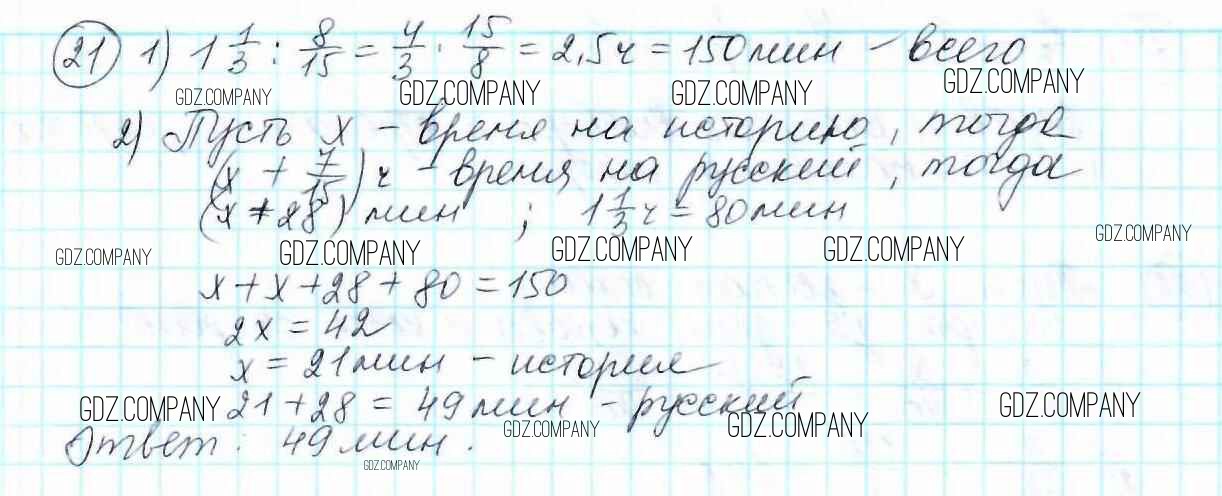 21 1) 1 1/3 : 8/15 = 4/3 · 15/8 = 2,5ч = 150мин – всего
GDZ.COMPANY GDZ.COMPANY GDZ.COMPANY GDZ.COMPANY
2) Пусть x – время на историю, тогда
(x + 7/15) ч – время на русский, тогда
(x + 28) мин ; 1 1/3 ч = 80мин
GDZ.COMPANY GDZ.COMPANY GDZ.COMPANY GDZ.COMPANY GDZ.COMPANY
x + x + 28 + 80 = 150
2x = 42
x = 21мин – история
GDZ.COMPANY 21 + 28 = 49мин – русский GDZ.COMPANY
GDZ.COMPANY GDZ.COMPANY
Ответ: 49мин.
GDZ.COMPANY